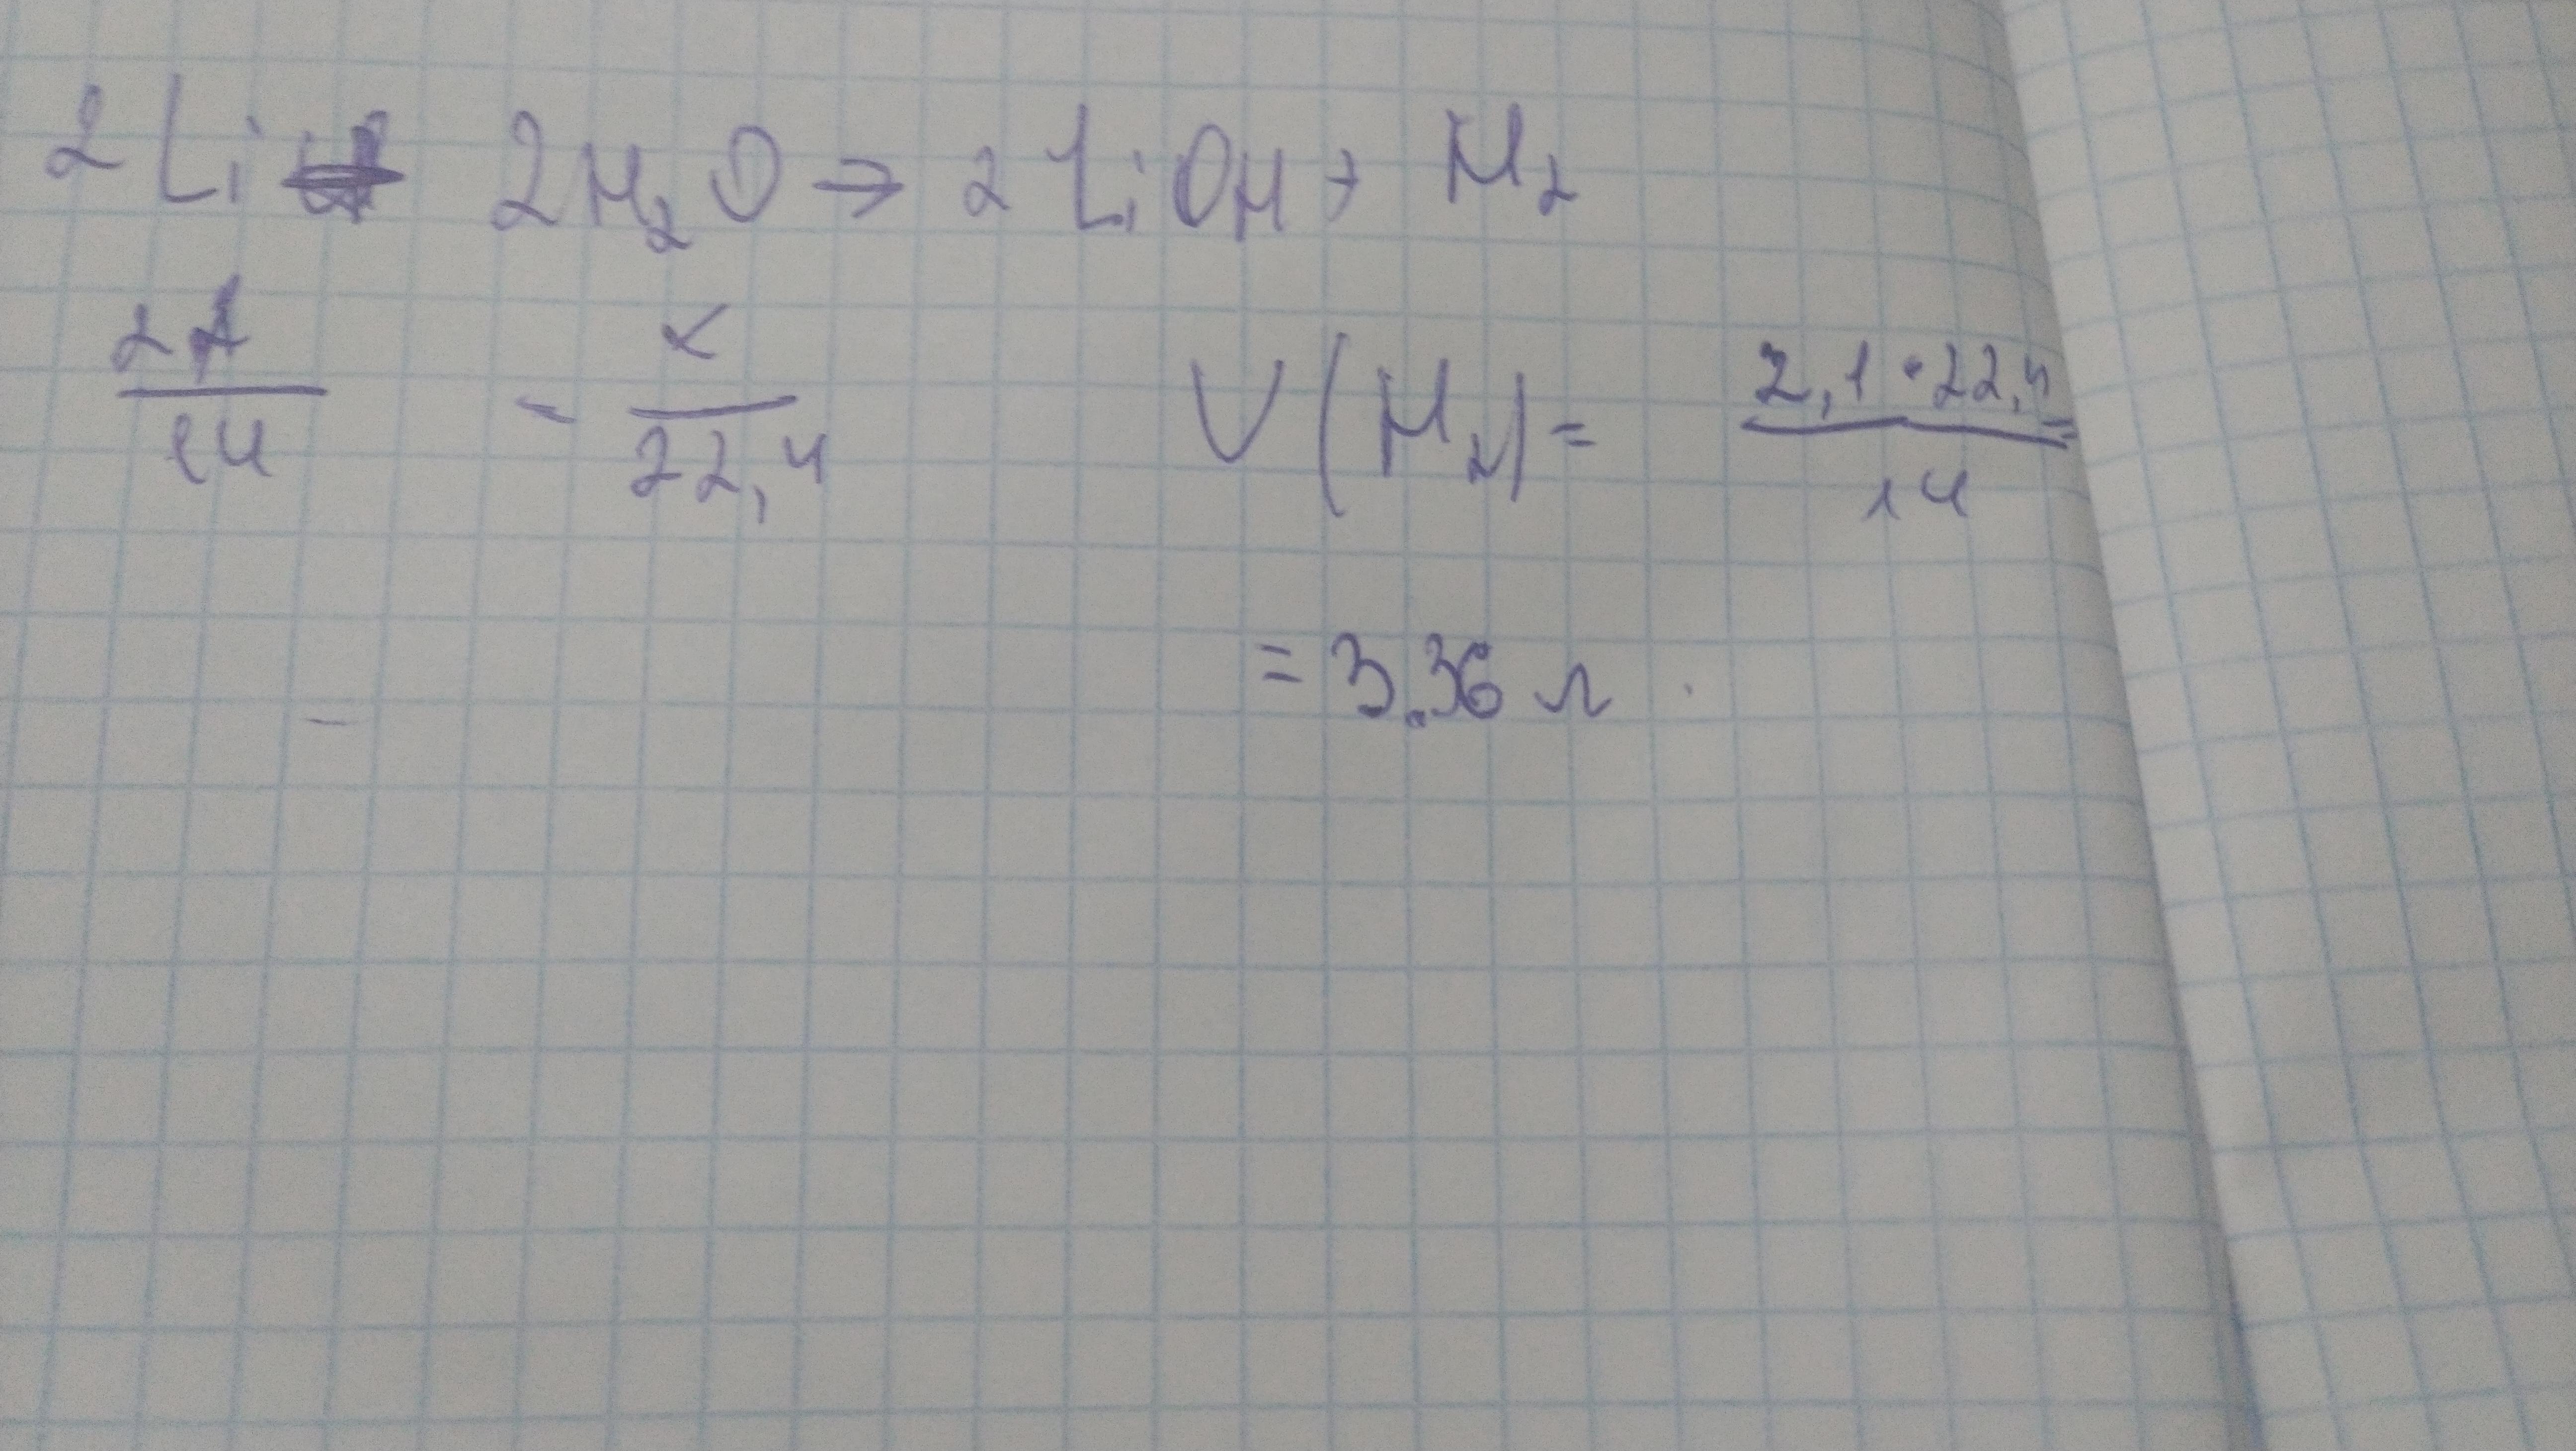 2Li 2H₂O → 2LiOH + H₂
2,1/14 = x/22,4 V(H₂) = 2,1 • 22,4/14 =
= 3.36 л